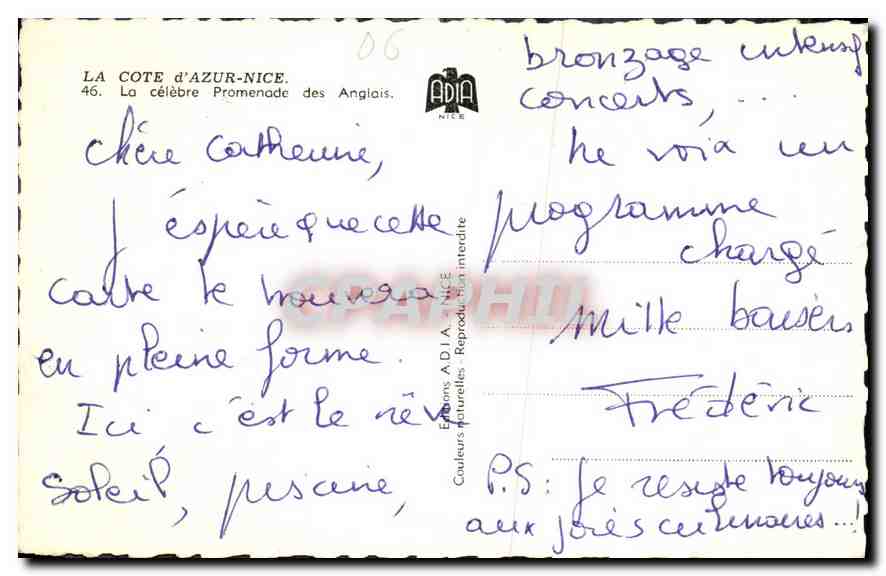 06
LA COTE d'AZUR-NICE.
46. La célèbre Promenade des Anglais.
ADIA
NICE
Chère Catherine,
J'éspère que cette
carte te trouvera
en pleine forme.
Ici, c'est le rêve
Soleil, piscine,
Editions ADIA. - NICE
Couleurs naturelles - Reproduction interdite
CPAPHIL
bronzage intensif
concerts, ...
me voià un
programme
chargé
Mille baisers
Frédéric
P.S: Je resiste toujours
aux joies culinaires...!